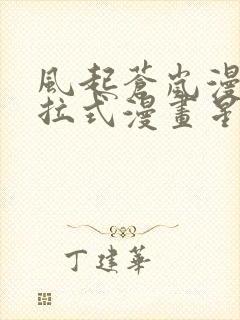 風起蒼嵐漫
拉式漫畫星
丁建華